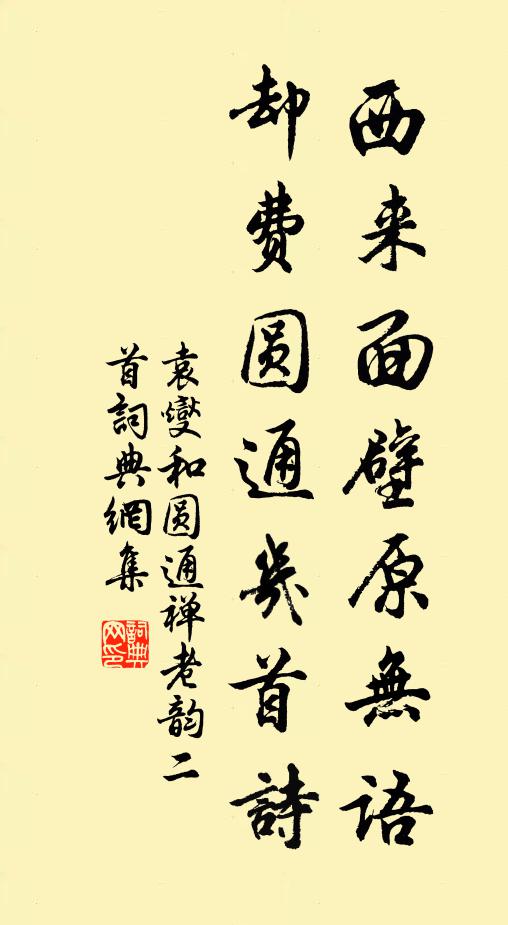 西来面壁原無语
却费圆通幾首詩
袁燮和圆通禅老韵二
首詞典網集
詞典
网印